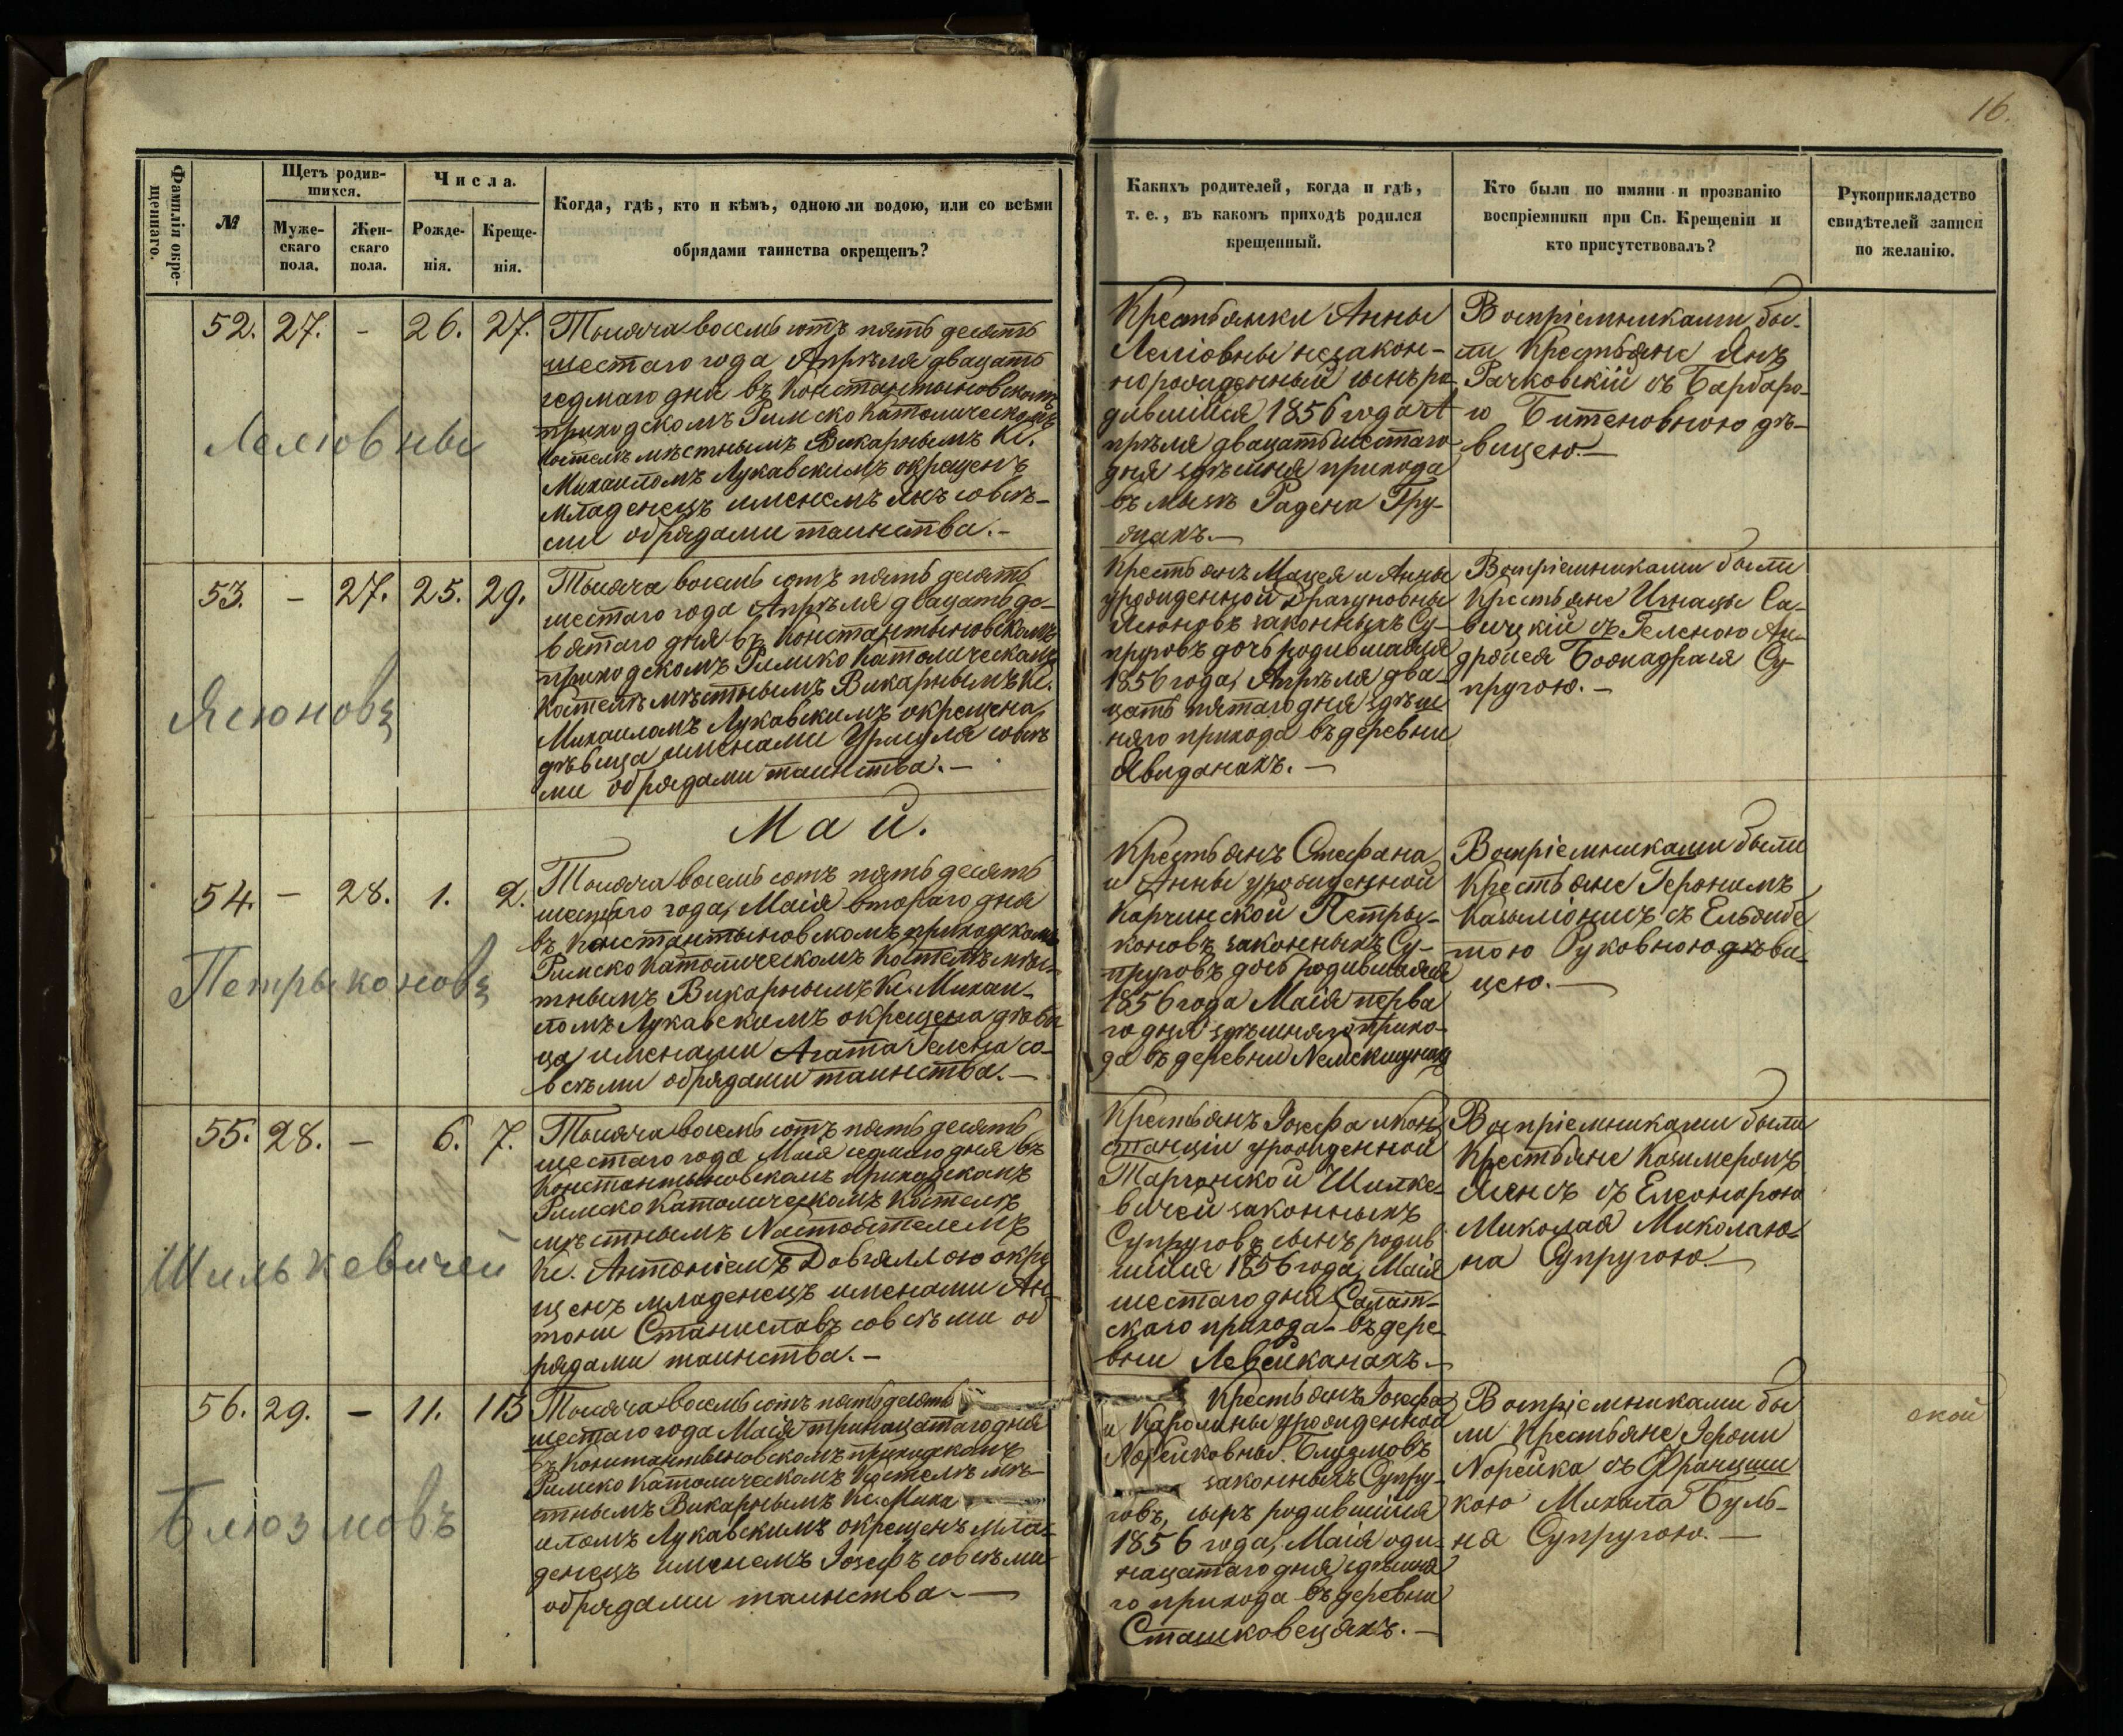 16.
Фамилія окре-
щеннаго.
№
Щетъ родив-
шихся.
Муже-
скаго
пола.
Жен-
скаго
пола.
Числа.
Рожде-
нія.
Креще-
нія.
Когда, гдѣ, кто и кѣмъ, одною ли водою, или со всѣми
обрядами таинства окрещенъ?
Какихъ родителей, когда и гдѣ,
т. е., въ какомъ приходѣ родился
крещенный.
Кто были по имяни и прозванію
воспріемники при Св. Крещеніи и
кто присутствовалъ?
Рукоприкладство
свидѣтелей записи
по желанію.
52. 27. - 26. 27.
Лелювны
Тысяча восемь сотъ пять десять
шестаго года Апрѣля двацать
седмаго дня въ Константыновскомъ
приходскомъ Римско Католическомъ
Костелѣ мѣстнымъ Викарнымъ Кс.
Михаиломъ Лукавскимъ окрещенъ
младенецъ именемъ Янъ совсѣ-
ми обрядами таинства.-
Крестьянки Анны
Леліовны незакон-
норожденный сынъ ро-
дившійся 1856 года А-
прѣля двацать шестаго
дня здѣшня прихода
въ мызѣ Радена
Воспріемниками бы-
ли Крестьяне Янъ
Рачковскій съ Барбаро-
ю Битеновною дѣ-
вицею.-
53. - 27. 25. 29.
Ясюновъ
Тысяча восемь сотъ пять десять
шестаго года Апрѣля двацать де-
вятаго дня въ Константыновскомъ
приходскомъ Римско Католическомъ
Костелѣ мѣстнымъ Викарнымъ Кс.
Михаиломъ Лукавскимъ окрещена
дѣвица именами Уршуля совсѣ
ми обрядами таинства.-
Крестьянъ Мацея и Анны
урожденной Драгуновны
Ясюновъ законныхъ Су-
пруговъ дочь родившаяся
1856 года, Апрѣля два-
цать пятаго дня здѣш
няго прихода въ деревни
Явиданахъ.-
Воспріемниками были
Крестьяне Игнацы Са-
вицкій съ Геленою Ан-
дрейея Боснадрагя Су-
пругою.-
Май.
54. - 28. 1. 2.
Петрыконовъ
Тысяча восемь сотъ пять десять
шестаго года, Маія втораго дня
въ Константыновскомъ приходскомъ
Римско Католическомъ Костелѣ мѣс-
тнымъ Викарнымъ Кс. Михаи-
ломъ Лукавскимъ окрещена дѣви
ца именами Агата Гелена со-
всѣми обрядами таинства.-
Крестьянъ Стефана
и Анны урожденной
Карчинской Петры-
коновъ законныхъ Су-
пруговъ дочь родившаяся
1856 года Маія перва
го дня здѣшняго прихо-
да въ деревни
Воспріемниками были
Крестьяне Геронимъ
Казыміонисъ съ Ельжбе
тою Руковною дѣви-
цею.-
55. 28. - 6. 7.
Шилькевичей
Тысяча восемь сотъ пять десять
шестаго года Маія седмаго дня въ
Константыновскомъ приходскомъ
Римско Католическомъ Костелѣ
мѣстнымъ Настоятелемъ
Кс. Антоніемъ Довгяллою окре
щенъ младенецъ именами Ан-
тони Станиславъ совсѣми об
рядами таинства.-
Крестьянъ Іозефа и Кон
станціи урожденной
Тарганской Шилке-
вичей законныхъ
Супруговъ сынъ родив
шійся 1856 года, Маія
шестаго дня Салат-
скаго прихода въ дере-
вни Левейканахъ.-
Воспріемниками были
Крестьяне Казимеромъ
съ Елеонарою
Миколая Миколаю-
на Супругою.-
56. 29. - 11. 113
Блюзмовъ
Тысяча восемь сотъ пять десять
шестаго года Маія тринацатаго дня
въ Константыновскомъ приходскомъ
Римско Католическомъ Костелѣ мѣ-
стнымъ Викарнымъ Кс. Миха
иломъ Лукавскимъ окрещенъ мла-
денецъ именемъ Іозефъ совсѣми
обрядами таинства.-
Крестьянъ Іозефа
и Каролины урожденной
Норейковны Блузмовъ
законныхъ Супру-
говъ, сынъ родившійся
1856 года, Маія оди-
нацатаго дня здѣшня
го прихода въ деревни
Сташковецяхъ.-
Воспріемниками бы
ли Крестьяне Герони
Норейка съ Францши
кою Михала Буль-
ня Супругою.-
ской